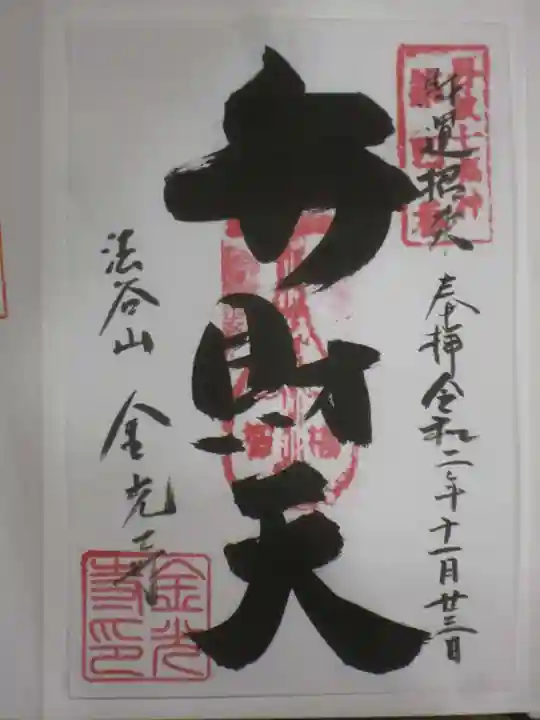 開運招福 奉拝 令和二年十一月廿三日
弁財天
法谷山 金光寺
金光寺印